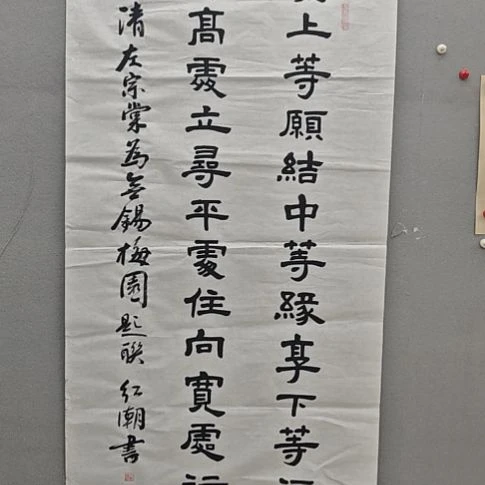 上等願結中等緣享下等
高處立尋平處住向寬處
清左宗棠為無錫梅園題聯 紅潮書